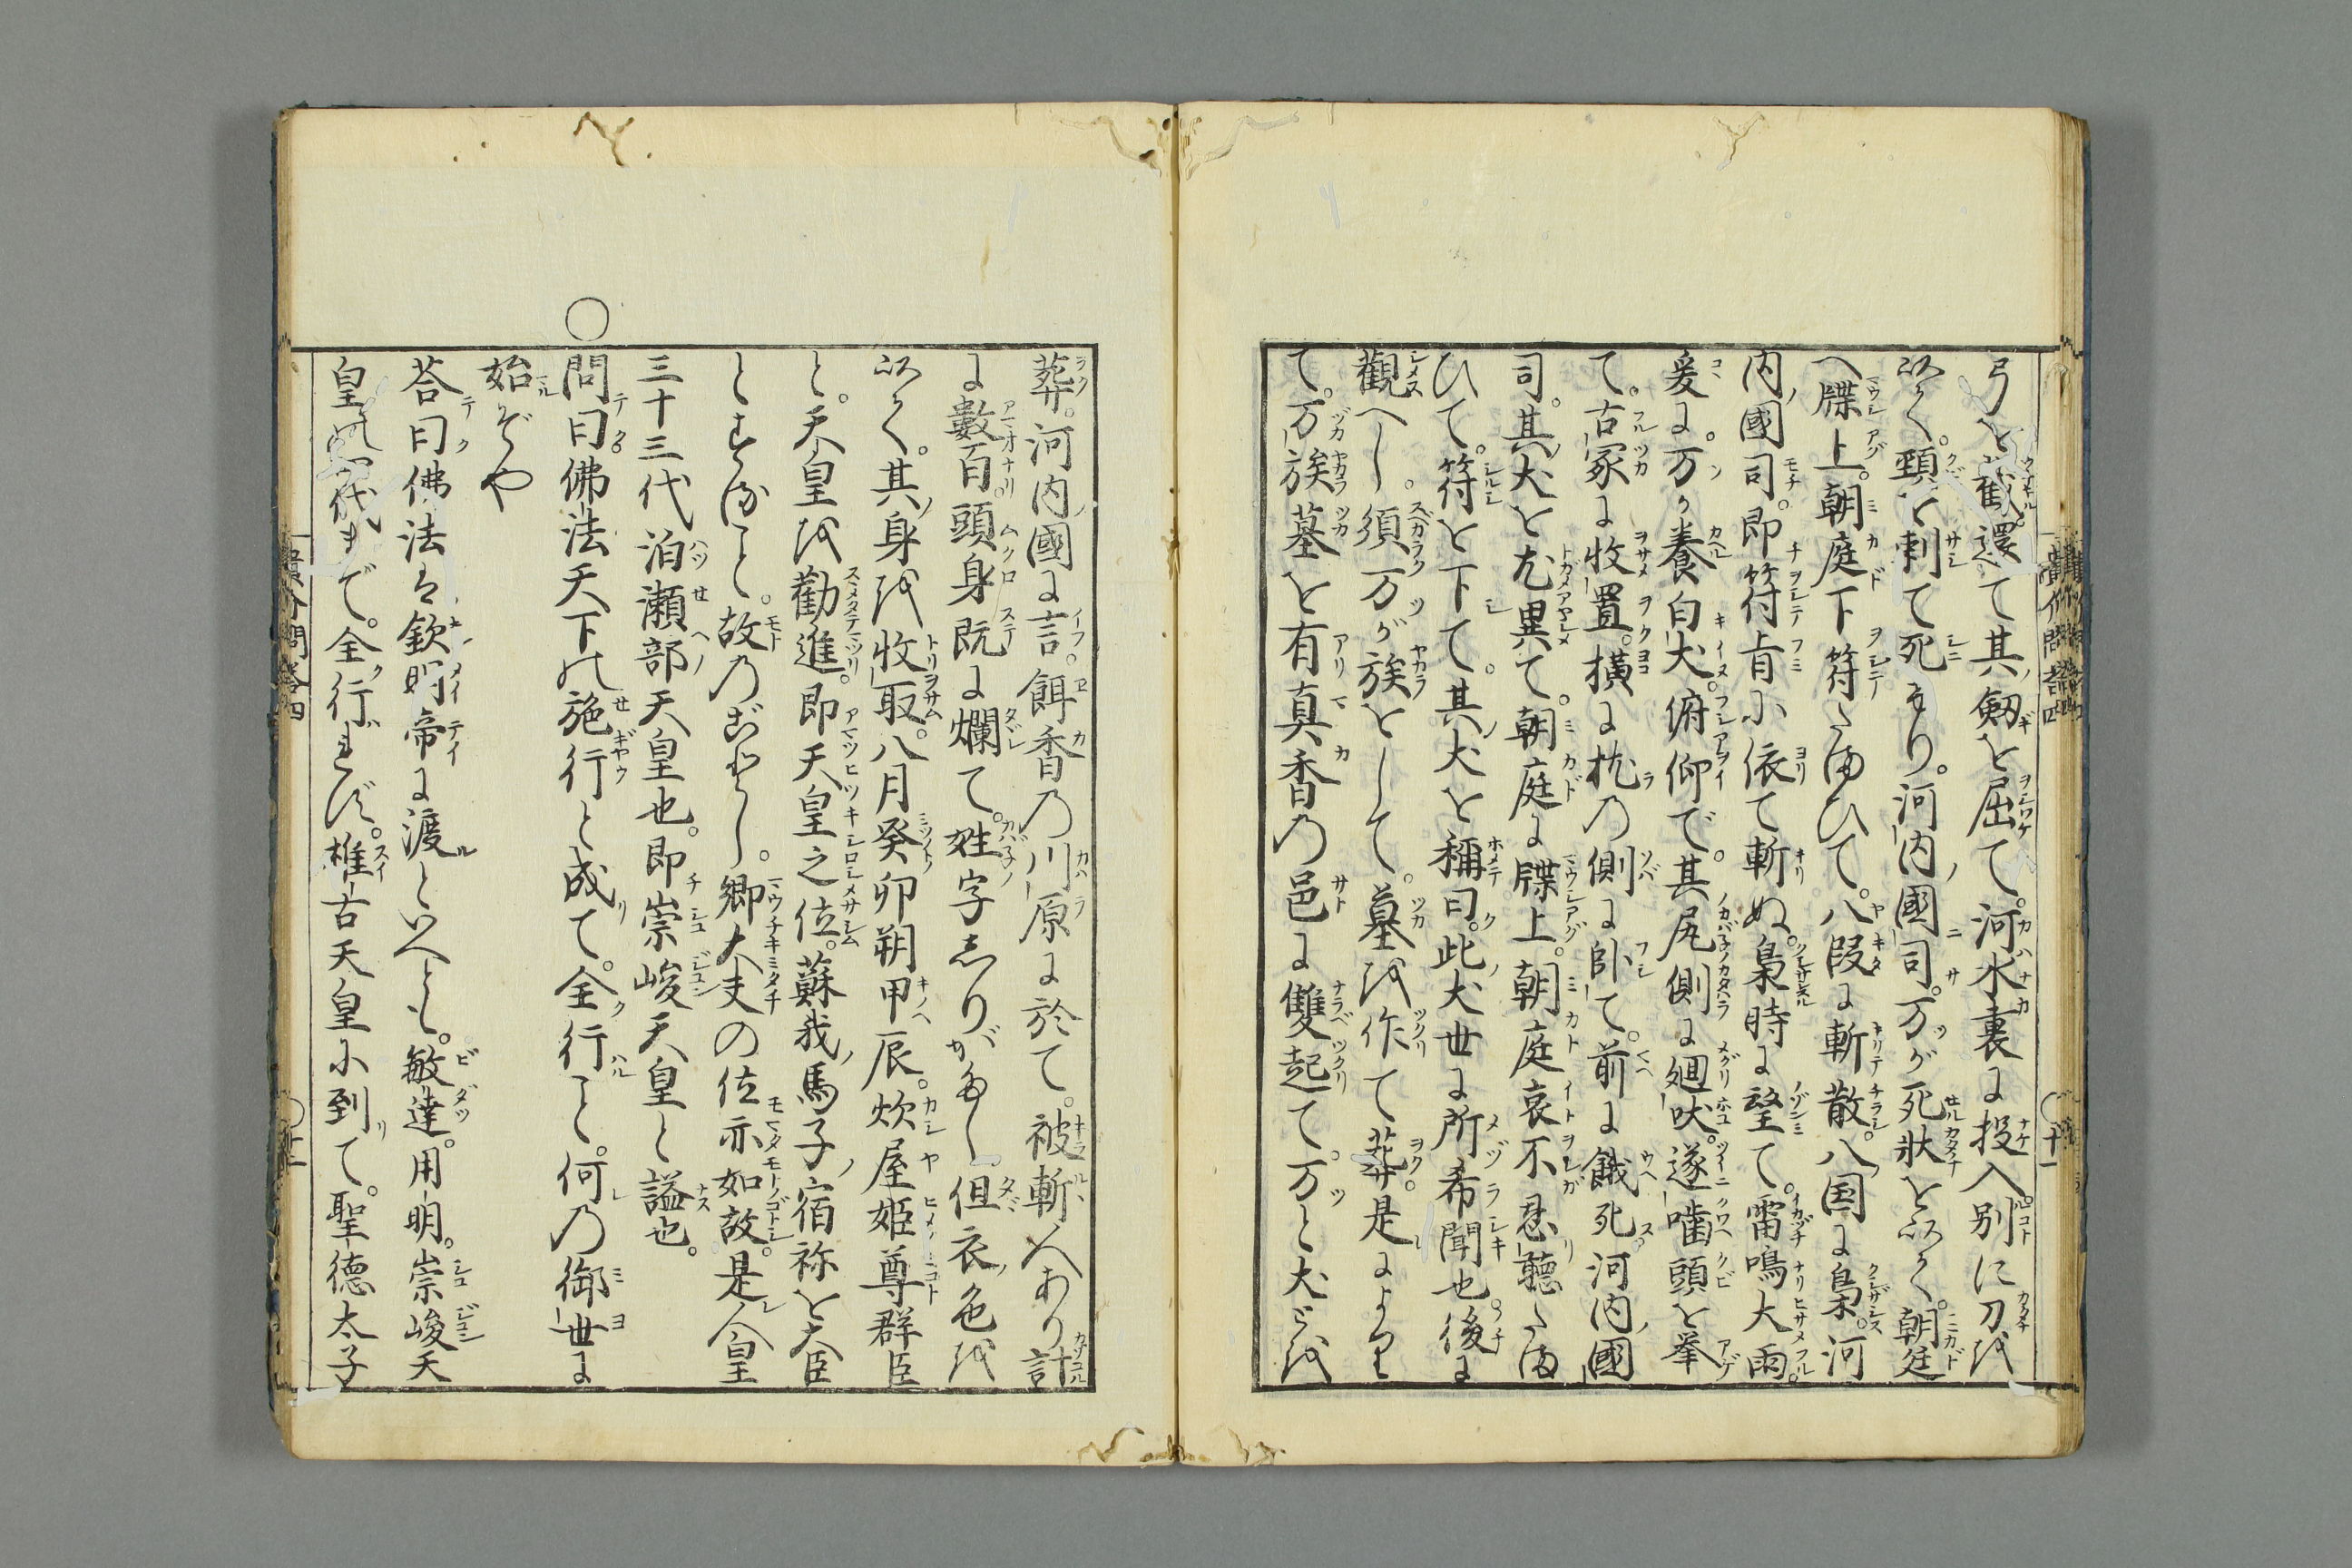 弓を截還て其劔を屈て。河水裏に投入。別に刀を
以て。頸を刺て死せり。河内國司。万が死状を以て。朝廷
へ牒上。朝庭下符たまひて。八段に斬散。八国に梟。河
内國司。即符旨に依て斬ぬ。梟時に望て。雷鳴大雨。
爰に。万が養白犬。俯仰で。其尻側に廻吠。遂噛頭を挙
て。古冢に收置。横に枕の側に卧て。前に餓死河内國
司。其犬を尤異て。朝庭に牒上。朝庭哀不忍聽たま
ひて。符を下て。其犬を稱曰。此犬世に所希聞也後に
觀べし。須万が族をして。墓を作て葬。是により
て。万族墓を有真香の邑に雙起て。万と犬とを
葬。河内國に言。餌香の川原に於て。被斬人あり計
に數百。頭身既に爛て。姓字しりがたし但衣色を
以て。其身を收取。八月癸卯朔甲辰。炊屋姫尊群臣
と。天皇を勸進。即天皇之位。蘇我馬子宿祢を大臣
とすること。故のごとし。卿大夫の位亦如故。是人皇
三十三代泊瀬部天皇也。即崇峻天皇と謚也。
○
問曰佛法天下の施行と成て。全行こと。何の御世に
始ぞや
荅曰佛法は欽明帝に渡といへとも。敏達。用明。崇峻天
皇の代まで。全行れず。推古天皇に到て。聖徳太子